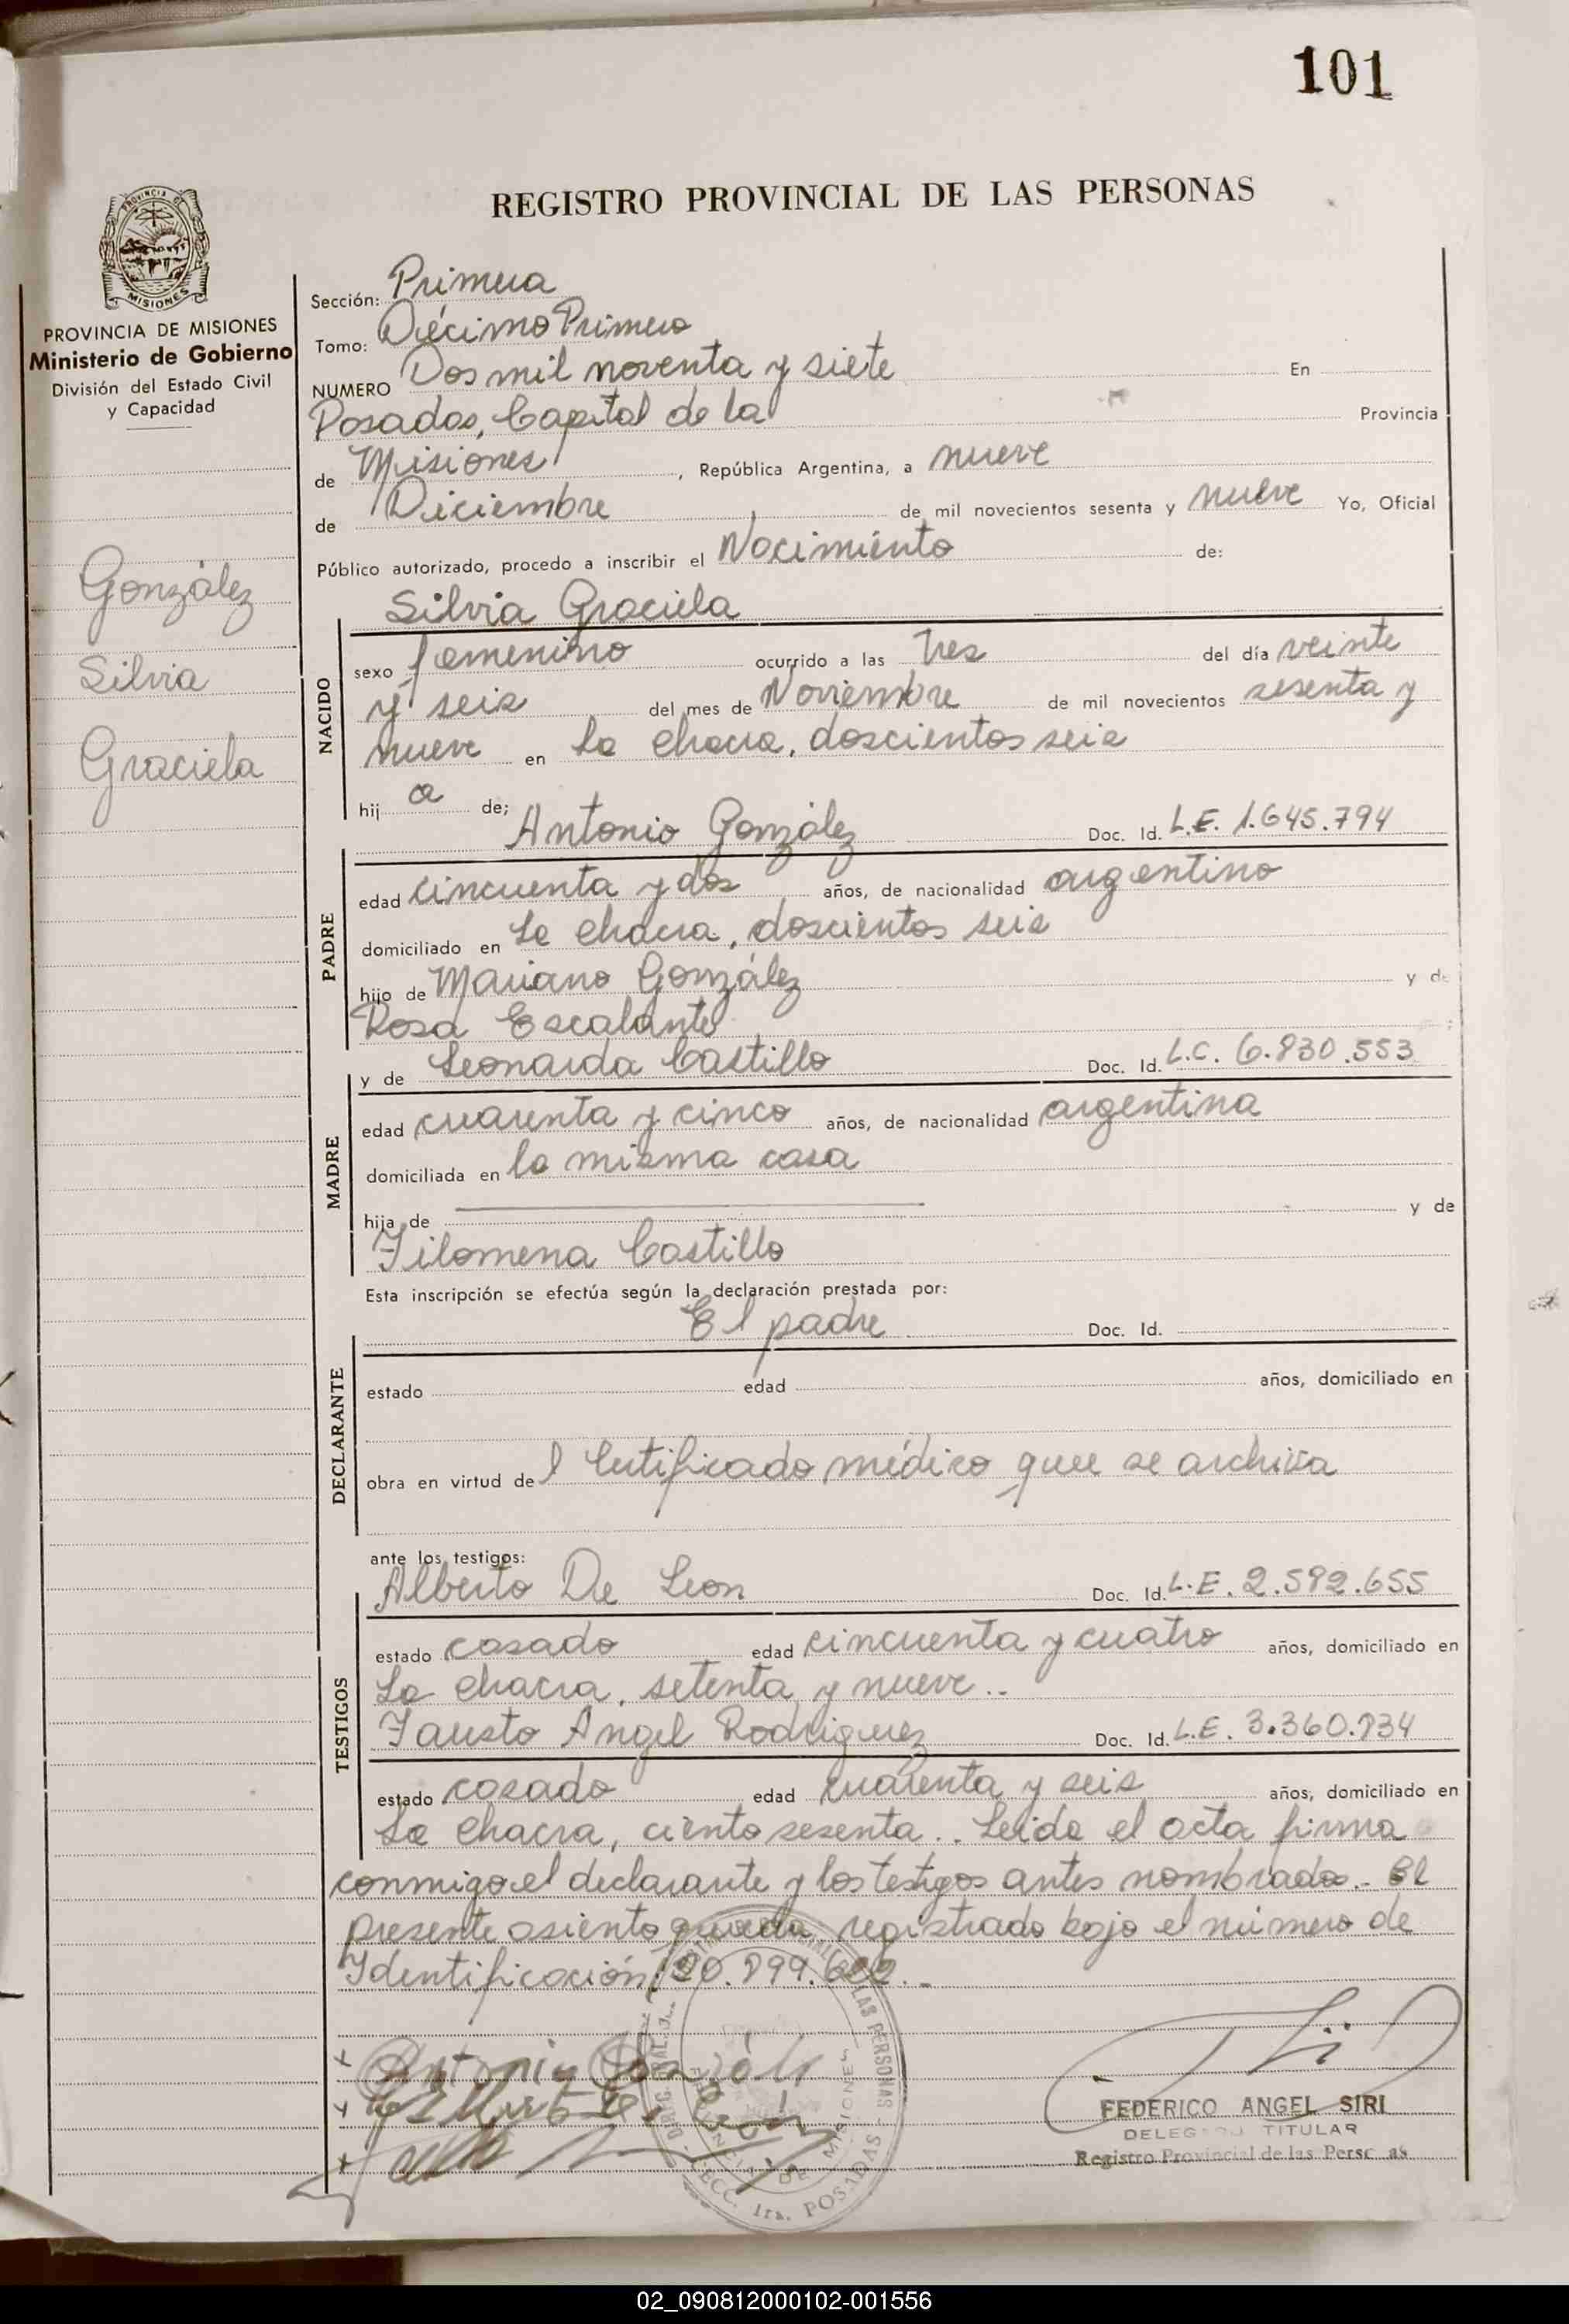 101
REGISTRO PROVINCIAL DE LAS PERSONAS
PROVINCIA DE MISIONES
Ministerio de Gobierno
División del Estado Civil
y Capacidad
González
Silvia
Graciela
Sección: Primera
Tomo: Décimo Primero
NUMERO Dos mil noventa y siete En
Posadas, Capital de la Provincia
de Misiones, República Argentina, a nueve
de Diciembre de mil novecientos sesenta y nueve Yo, Oficial
Público autorizado, procedo a inscribir el Nacimiento de:
Silvia Graciela
NACIDO
sexo femenino ocurrido a las tres del día veinte
y seis del mes de Noviembre de mil novecientos sesenta y
nueve en La chacra, doscientos seis
hij a de;
Antonio González Doc. Id. L.E. 1.645.794
PADRE
edad cincuenta y dos años, de nacionalidad argentino
domiciliado en La chacra, doscientos seis
hijo de Mariano González y de
Rosa Escalante
y de Leonarda Castillo Doc. Id. L.C. 6.830.553
MADRE
edad cuarenta y cinco años, de nacionalidad argentina
domiciliada en la misma casa
hija de y de
Filomena Castillo
Esta inscripción se efectúa según la declaración prestada por:
El padre Doc. Id.
DECLARANTE
estado edad años, domiciliado en
obra en virtud del Certificado médico que se archiva
ante los testigos:
Alberto De Leon Doc. Id. L.E. 2.592.655
TESTIGOS
estado casado edad cincuenta y cuatro años, domiciliado en
La chacra, setenta y nueve..
Fausto Angel Rodriguez Doc. Id. L.E. 3.360.934
estado casado edad cuarenta y seis años, domiciliado en
La chacra, ciento sesenta.. Leida el acta firma
conmigo el declarante y los testigos antes nombrados.- El
presente asiento queda registrado bajo el número de
Identificación: 20.899.
Antonio
FEDERICO ANGEL SIRI
DELEGADO TITULAR
Registro Provincial de las Personas
SECC. 1ra. POSADAS
PROVINCIA DE MISIONES
02_090812000102-001556